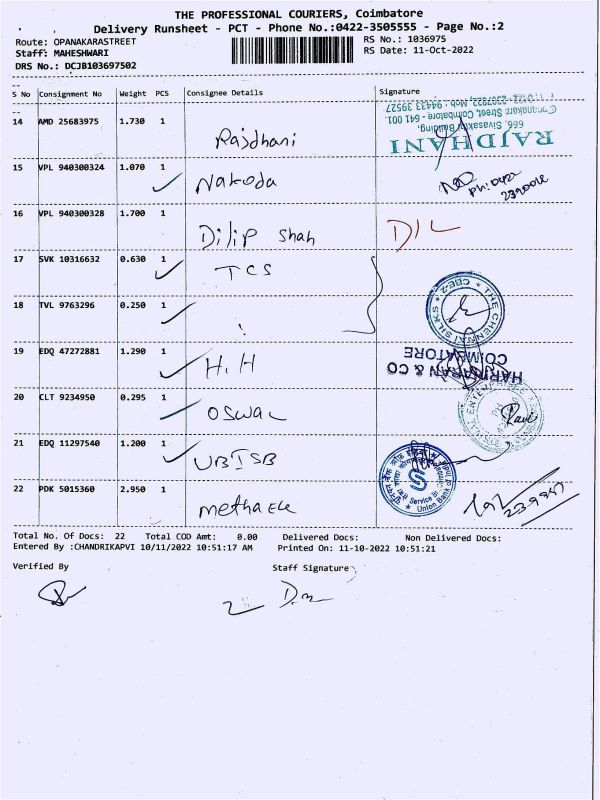 THE PROFESSIONAL COURIERS, Coimbatore
Delivery Runsheet - PCT - Phone No.:0422-3505555 - Page No.:2
Route: OPANAKARASTREET RS No.: 1036975
Staff: MAHESHWARI RS Date: 11-Oct-2022
DRS No.: DCJB103697502
S No Consignment No Weight PCS Consignee Details Signature
14 AMD 25683975 1.730 1 Rajdhani
RAJDHANI
666, Sivasakthi Building,
Opanakara Street, Coimbatore - 641 001.
Mob : 94433 39527
15 VPL 940300324 1.070 1 Nakoda
16 VPL 940300328 1.700 1 Dilip Shah DIL
17 SVK 10316632 0.630 1 TCS
THE CHENNAI SILKS * CBE-2 *
18 TVL 9763296 0.250 1 !
19 EDQ 47272881 1.290 1 H.H
& CO
COIMBATORE
20 CLT 9234950 0.295 1 OSWAL
Ravi
21 EDQ 11297540 1.200 1 UBISB
Service Br.
Union Bank of India
22 PDK 5015360 2.950 1 Metha Ele
Total No. Of Docs: 22 Total COD Amt: 0.00 Delivered Docs: Non Delivered Docs:
Entered By :CHANDRIKAPVI 10/11/2022 10:51:17 AM Printed On: 11-10-2022 10:51:21
Verified By Staff Signature